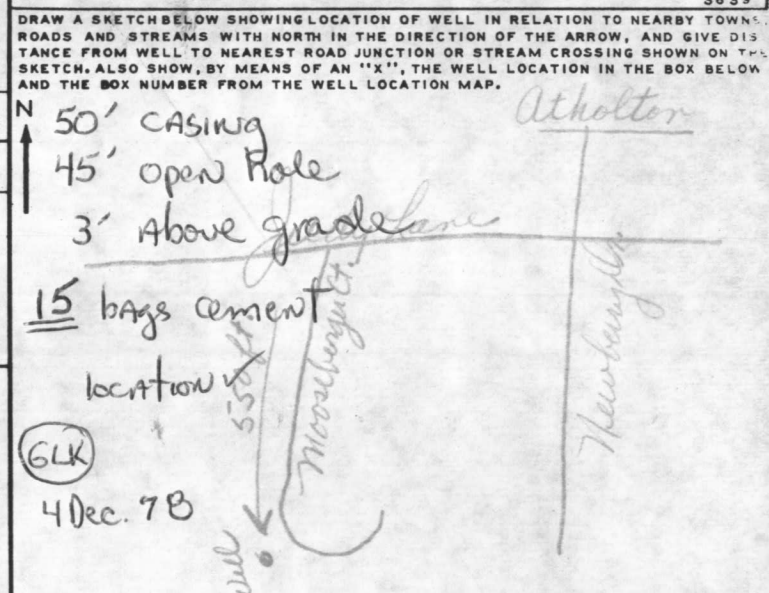 DRAW A SKETCH BELOW SHOWING LOCATION OF WELL IN RELATION TO NEARBY TOWNS,
ROADS AND STREAMS WITH NORTH IN THE DIRECTION OF THE ARROW, AND GIVE DIS
TANCE FROM WELL TO NEAREST ROAD JUNCTION OR STREAM CROSSING SHOWN ON THE
SKETCH. ALSO SHOW, BY MEANS OF AN "X", THE WELL LOCATION IN THE BOX BELOW
AND THE BOX NUMBER FROM THE WELL LOCATION MAP.
N
Atholton
50' CASING
45' open hole
3' Above grade
Lane
15 bags cement
location ✓
550 ft
Mooseberger Ct.
Newbury Dr.
GLK
4 Dec. 78
well